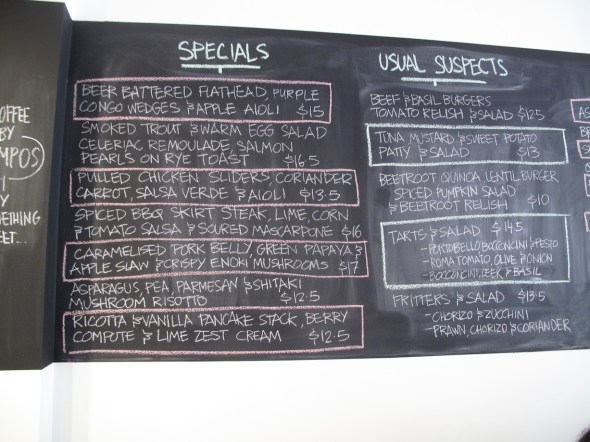 OFFEE
BY
MPOS
I
Y
ETHING
EET...
SPECIALS
BEER BATTERED FLATHEAD, PURPLE
CONGO WEDGES & APPLE AIOLI $15
SMOKED TROUT & WARM EGG SALAD
CELERIAC REMOULADE, SALMON
PEARLS ON RYE TOAST $16.5
PULLED CHICKEN SLIDERS, CORIANDER
CARROT, SALSA VERDE & AIOLI $13.5
SPICED BBQ SKIRT STEAK, LIME, CORN
& TOMATO SALSA & SOURED MASCARPONE $16
CARAMELISED PORK BELLY, GREEN PAPAYA &
APPLE SLAW & CRISPY ENOKI MUSHROOMS $17
ASPARAGUS, PEA, PARMESAN & SHITAKI
MUSHROOM RISOTTO $12.5
RICOTTA & VANILLA PANCAKE STACK, BERRY
COMPUTE & LIME ZEST CREAM $12.5
USUAL SUSPECTS
BEEF & BASIL BURGERS
TOMATO RELISH & SALAD $12.5
TUNA MUSTARD & SWEET POTATO
PATTY & SALAD $13
BEETROOT QUINOA, LENTIL BURGER
SPICED PUMPKIN SALAD
& BEETROOT RELISH $10
TARTS & SALAD $14.5
- PORTOBELLO BOCCONCINI & PESTO
- ROMA TOMATO, OLIVE & ONION
- BOCCONCINI, LEEK & BASIL
FRITTERS & SALAD $13.5
- CHORIZO & ZUCCHINI
- PRAWN, CHORIZO & CORIANDER